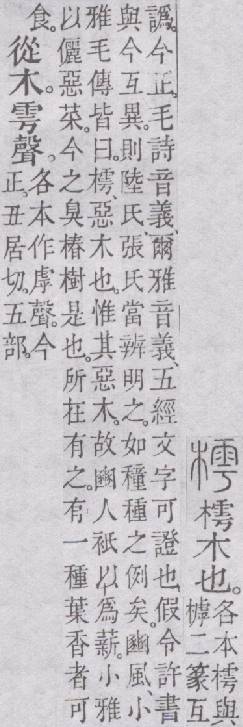 樗樗木也。各本樗與
㯉二篆互
譌。今正。毛詩音義、爾雅音義、五經文字可證也。假令許書
與今互異。則陸氏、張氏當辨明之。如種種之例矣。豳風、小
雅毛傳皆曰。樗、惡木也。惟其惡木。故豳人衹以爲薪。小雅
以儷惡菜。今之臭椿樹是也。所在有之。有一種葉香者可
食。從木。雩聲。各本作虖聲。今
正。丑居切。五部。